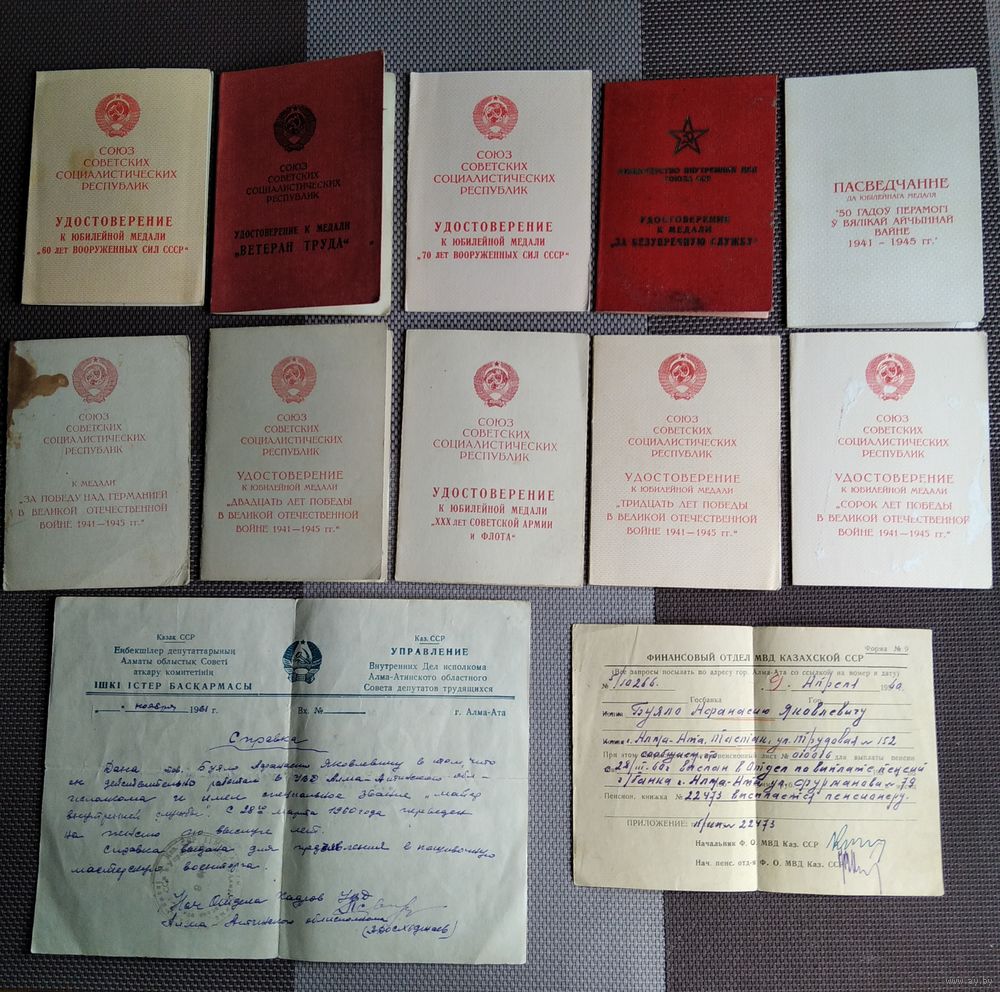 СОЮЗ
СОВЕТСКИХ
СОЦИАЛИСТИЧЕСКИХ
РЕСПУБЛИК
УДОСТОВЕРЕНИЕ
К ЮБИЛЕЙНОЙ МЕДАЛИ
„60 ЛЕТ ВООРУЖЕННЫХ СИЛ СССР“
СОЮЗ
СОВЕТСКИХ
СОЦИАЛИСТИЧЕСКИХ
РЕСПУБЛИК
УДОСТОВЕРЕНИЕ К МЕДАЛИ
„ВЕТЕРАН ТРУДА“
СОЮЗ
СОВЕТСКИХ
СОЦИАЛИСТИЧЕСКИХ
РЕСПУБЛИК
УДОСТОВЕРЕНИЕ
К ЮБИЛЕЙНОЙ МЕДАЛИ
„70 ЛЕТ ВООРУЖЕННЫХ СИЛ СССР“
МИНИСТЕРСТВО ВНУТРЕННИХ ДЕЛ
СОЮЗА ССР
УДОСТОВЕРЕНИЕ
К МЕДАЛИ
„ЗА БЕЗУПРЕЧНУЮ СЛУЖБУ“
ПАСВЕДЧАННЕ
ДА ЮБІЛЕЙНАГА МЕДАЛЯ
"50 ГАДОЎ ПЕРАМОГІ
Ў ВЯЛІКАЙ АЙЧЫННАЙ
ВАЙНЕ
1941 – 1945 гг."
СОЮЗ
СОВЕТСКИХ
СОЦИАЛИСТИЧЕСКИХ
РЕСПУБЛИК
К МЕДАЛИ
„ЗА ПОБЕДУ НАД ГЕРМАНИЕЙ
В ВЕЛИКОЙ ОТЕЧЕСТВЕННОЙ
ВОЙНЕ 1941—1945 гг.“
СОЮЗ
СОВЕТСКИХ
СОЦИАЛИСТИЧЕСКИХ
РЕСПУБЛИК
УДОСТОВЕРЕНИЕ
К ЮБИЛЕЙНОЙ МЕДАЛИ
„ДВАДЦАТЬ ЛЕТ ПОБЕДЫ
В ВЕЛИКОЙ ОТЕЧЕСТВЕННОЙ
ВОЙНЕ 1941—1945 гг.“
СОЮЗ
СОВЕТСКИХ
СОЦИАЛИСТИЧЕСКИХ
РЕСПУБЛИК
УДОСТОВЕРЕНИЕ
К ЮБИЛЕЙНОЙ МЕДАЛИ
„XXX лет СОВЕТСКОЙ АРМИИ
и ФЛОТА“
СОЮЗ
СОВЕТСКИХ
СОЦИАЛИСТИЧЕСКИХ
РЕСПУБЛИК
УДОСТОВЕРЕНИЕ
К ЮБИЛЕЙНОЙ МЕДАЛИ
„ТРИДЦАТЬ ЛЕТ ПОБЕДЫ
В ВЕЛИКОЙ ОТЕЧЕСТВЕННОЙ
ВОЙНЕ 1941—1945 гг.“
СОЮЗ
СОВЕТСКИХ
СОЦИАЛИСТИЧЕСКИХ
РЕСПУБЛИК
УДОСТОВЕРЕНИЕ
К ЮБИЛЕЙНОЙ МЕДАЛИ
„СОРОК ЛЕТ ПОБЕДЫ
В ВЕЛИКОЙ ОТЕЧЕСТВЕННОЙ
ВОЙНЕ 1941—1945 гг.“
Қазақ ССР
Еңбекшілер депутаттарының
Алматы облыстық Советі
атқару комитетінің
ІШКІ ІСТЕР БАСҚАРМАСЫ
Каз. ССР
УПРАВЛЕНИЕ
Внутренних Дел исполкома
Алма-Атинского областного
Совета депутатов трудящихся
ноября 1961 г. Вх. № г. Алма-Ата
Справка
Дана тов. Буяло Афанасию Яковлевичу в том, что
он действительно работал в УВД Алма-Атинского обл-
исполкома и имел специальное звание „майор
внутренней службы. С 28го марта 1960 года переведен
на пенсию по выслуге лет.
Справка выдана для предъявления в пошивочную
мастерскую военторга.
Нач Отдела Кадров УВД
Алма-Атинского облисполкома
Форма № 9
ФИНАНСОВЫЙ ОТДЕЛ МВД КАЗАХСКОЙ ССР
Все запросы посылать по адресу гор. Алма-Ата со ссылкой на номер и дату
№ 5/10266 9 Апреля
Буяло Афанасию Яковлевичу
г. Алма-Ата, Тастак, ул. Трудовая № 152
При этом сообщает, что пенсионный лист № для выплаты пенсии
с 28/III-60г выслан в Отдел по выплате пенсий
г/банка г. Алма-Ата ул. Фурманова № 79.
Пенсион. книжка № 22473 высылается пенсионеру.
ПРИЛОЖЕНИЕ: № 22473
Начальник Ф. О. МВД Каз. ССР
Нач. пенс. отд-я Ф. О. МВД Каз. ССР
www.ay.by